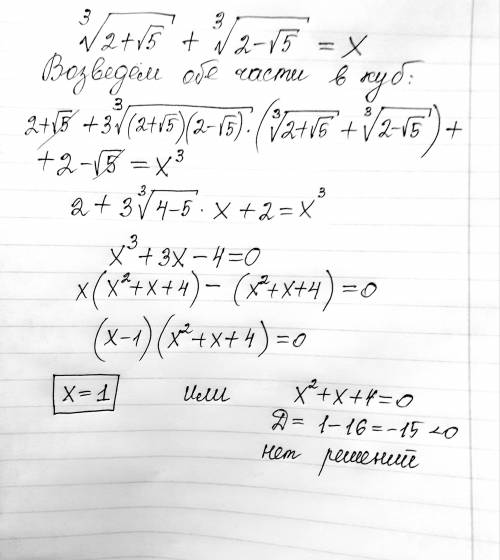 ∛(2+√5) + ∛(2-√5) = x
Возведём обе части в куб:
2+√5 + 3∛((2+√5)(2-√5)) · (∛(2+√5) + ∛(2-√5)) +
+ 2-√5 = x³
2 + 3∛(4-5) · x + 2 = x³
x³ + 3x - 4 = 0
x(x² + x + 4) - (x² + x + 4) = 0
(x-1)(x² + x + 4) = 0
x = 1 или x² + x + 4 = 0
Д = 1-16 = -15 < 0
нет решений